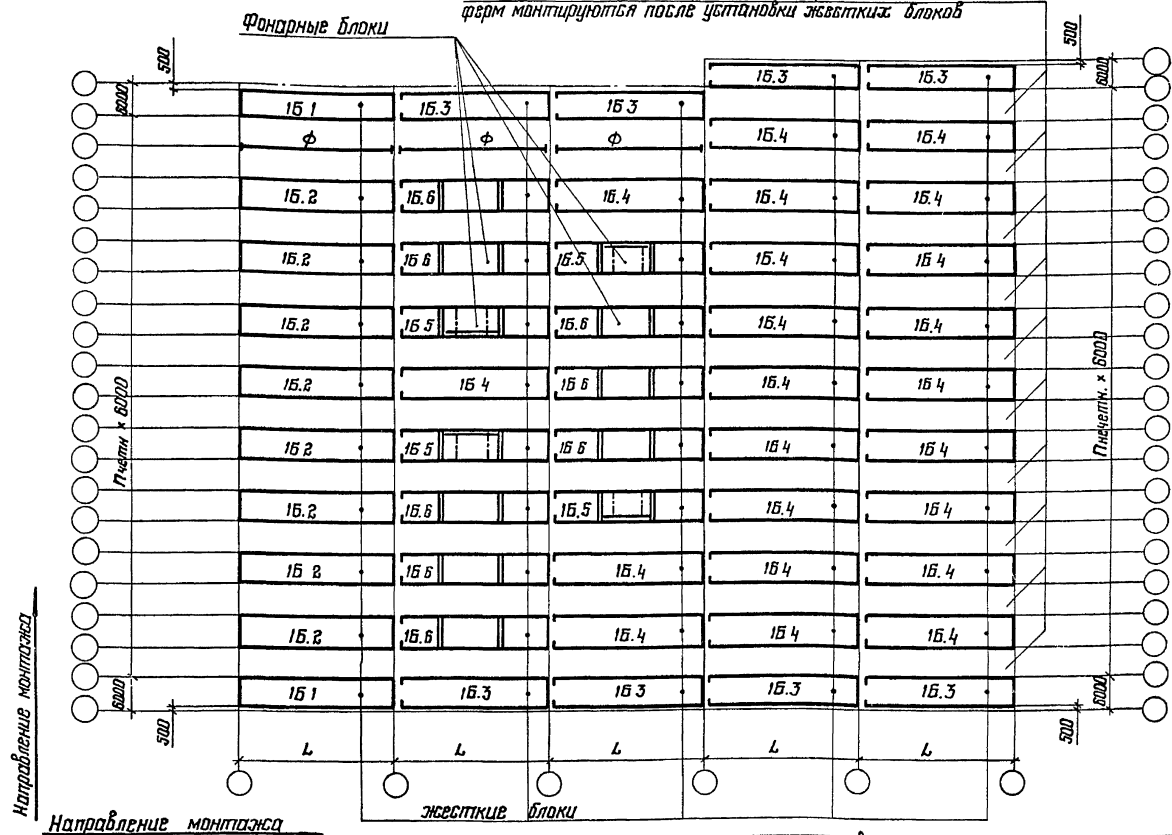 ферм монтируются после установки жестких блоков
Фонарные блоки
500
500
6000
6000
1Б.3 1Б.3
1Б1 1Б.3 1Б3
Ф Ф Ф
1Б.4 1Б.4
1Б.2 1Б.6 1Б.4 1Б.4 1Б.4
1Б.2 1Б6 1Б.5 1Б.4 1Б4
1Б.2 1Б5 1Б.6 1Б.4 1Б.4
1Б.2 1Б4 1Б6 1Б.4 1Б4
1Б2 1Б5 1Б6 1Б4 1Б4
1Б.2 1Б.6 1Б.5 1Б.4 1Б4
1Б2 1Б6 1Б.4 1Б4 1Б.4
1Б.2 1Б.6 1Б.4 1Б4 1Б.4
1Б1 1Б.3 1Б.3 1Б.3 1Б.3
nчетн × 6000
nнечетн. × 6000
6000
6000
500
500
L L L L L
Направление монтажа
жесткие блоки
Направление монтажа